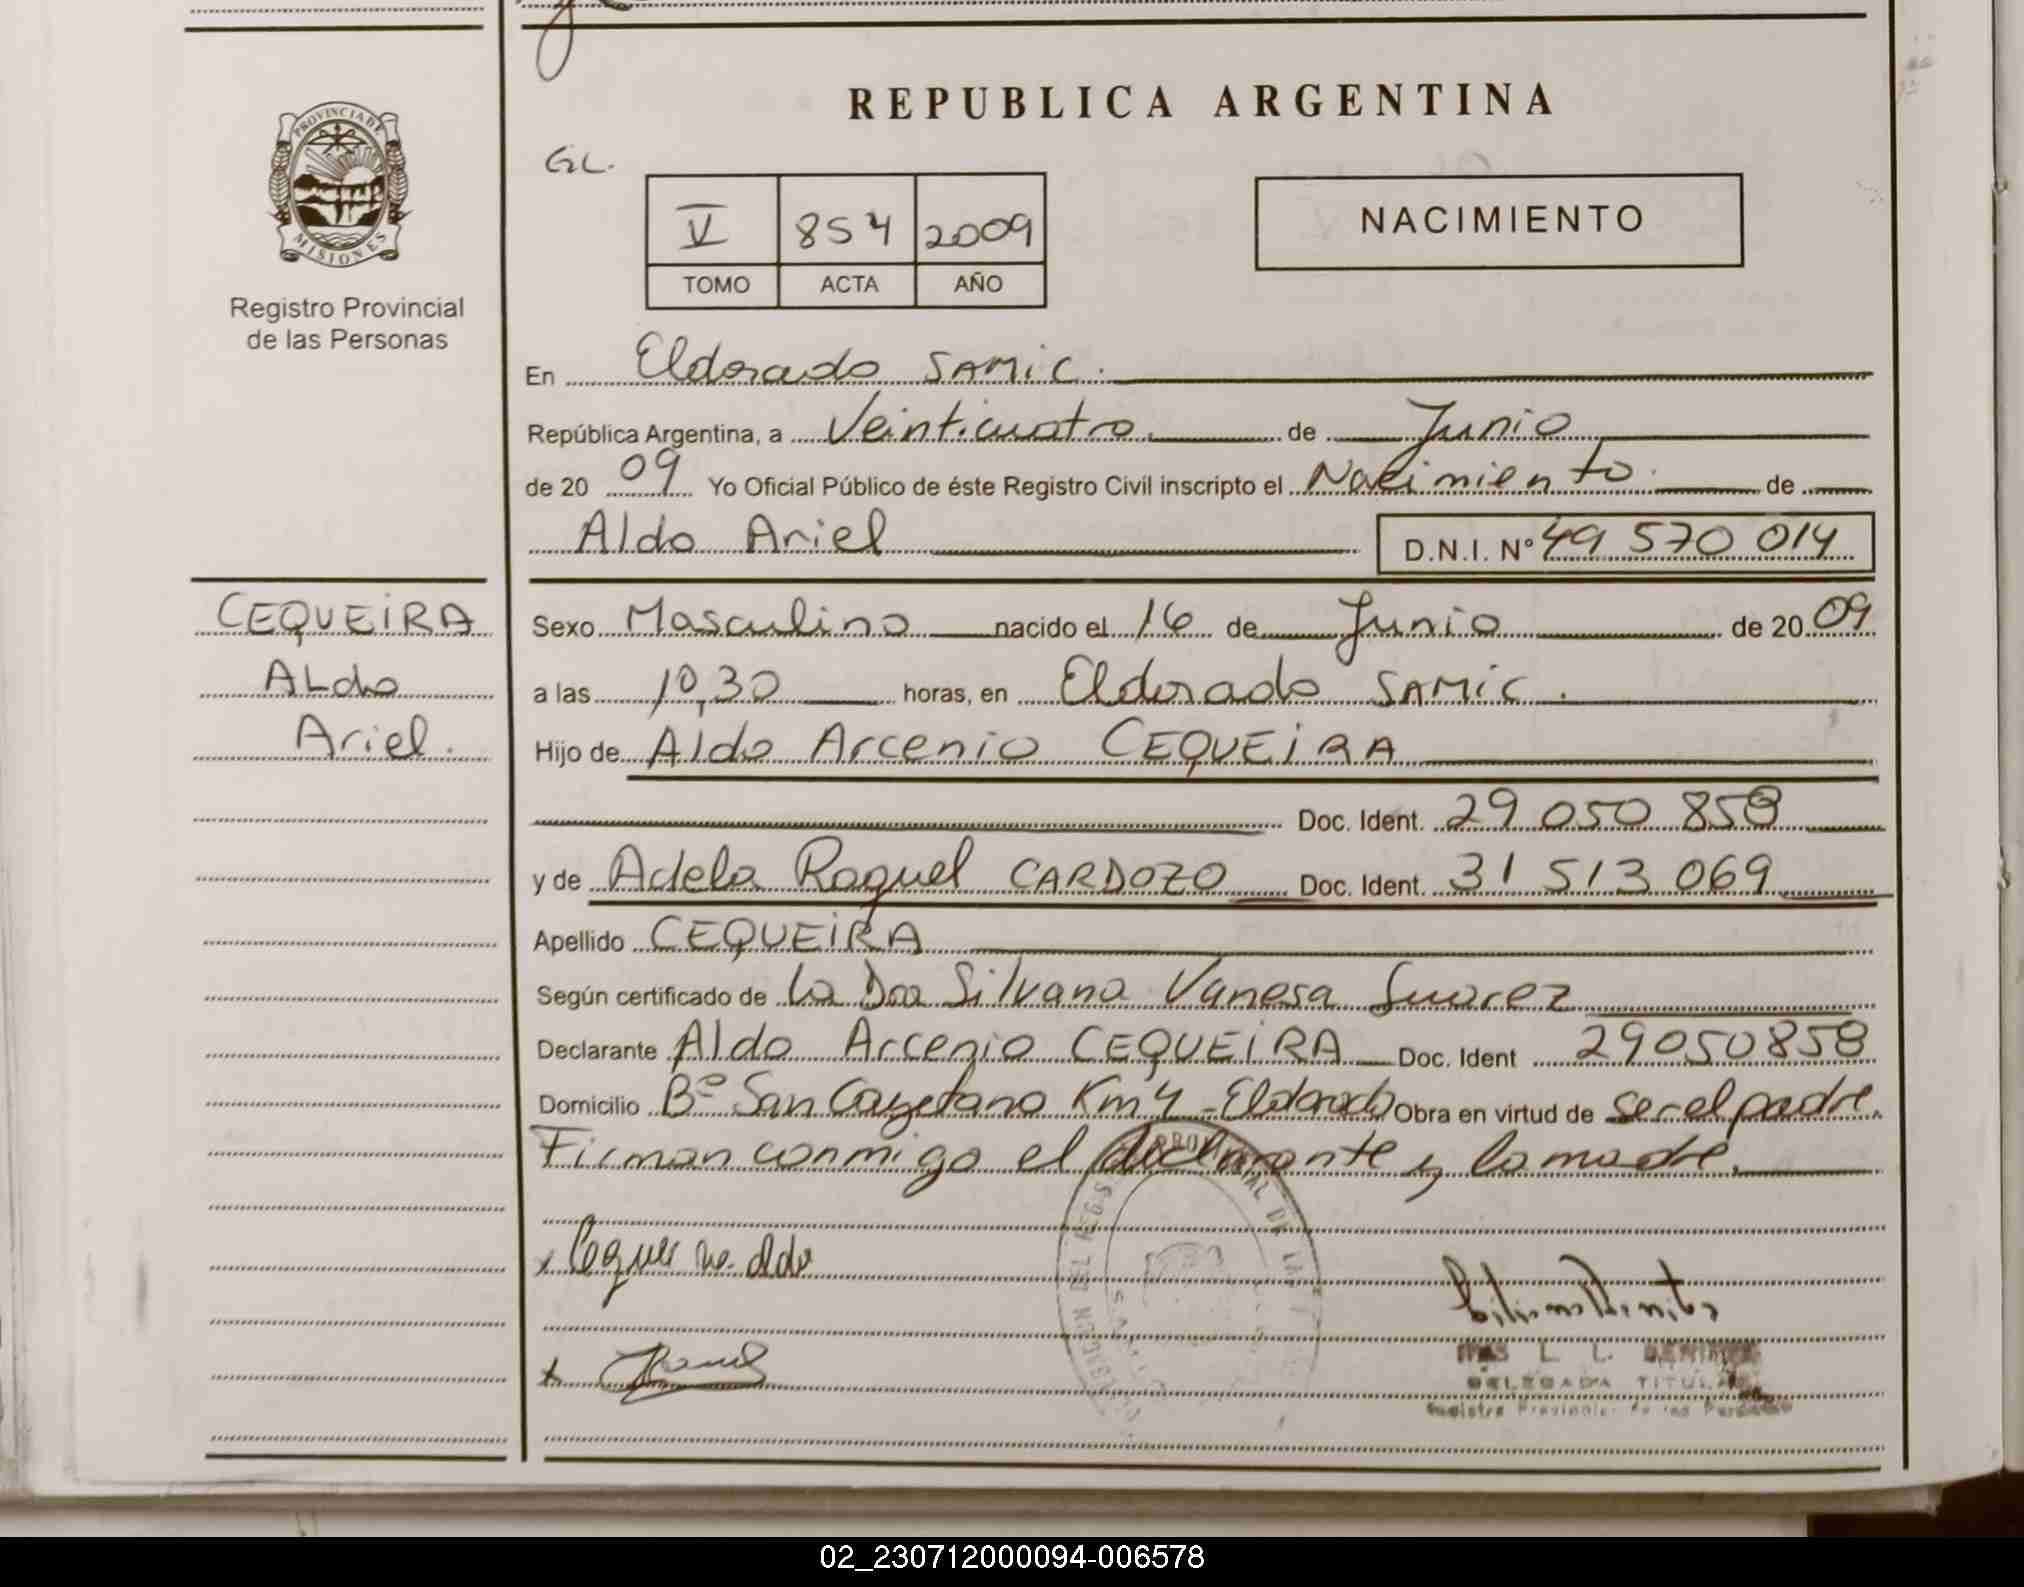 REPUBLICA ARGENTINA
PROVINCIA DE
MISIONES
Registro Provincial
de las Personas
GL.
V 854 2009
TOMO ACTA AÑO
NACIMIENTO
En Eldorado SAMIC.
República Argentina, a Veinticuatro de Junio
de 20 09 Yo Oficial Público de éste Registro Civil inscripto el Nacimiento de
Aldo Ariel D.N.I. N° 49 570 014
CEQUEIRA
ALdo
Ariel.
Sexo Masculino nacido el 16 de Junio de 20 09
a las 10,30 horas, en Eldorado SAMIC.
Hijo de Aldo Arcenio CEQUEIRA
Doc. Ident. 29 050 858
y de Adela Raquel CARDOZO Doc. Ident. 31 513 069
Apellido CEQUEIRA
Según certificado de La Dra Silvana Vanesa Suarez
Declarante Aldo Arcenio CEQUEIRA Doc. Ident 29050858
Domicilio Bº San Cayetano Km 4 - Eldorado Obra en virtud de ser el padre.
Firman conmigo el declarante y la madre.
x Aldo
x
DELEGADA TITULAR
Registro Provincial de las Personas
02_230712000094-006578